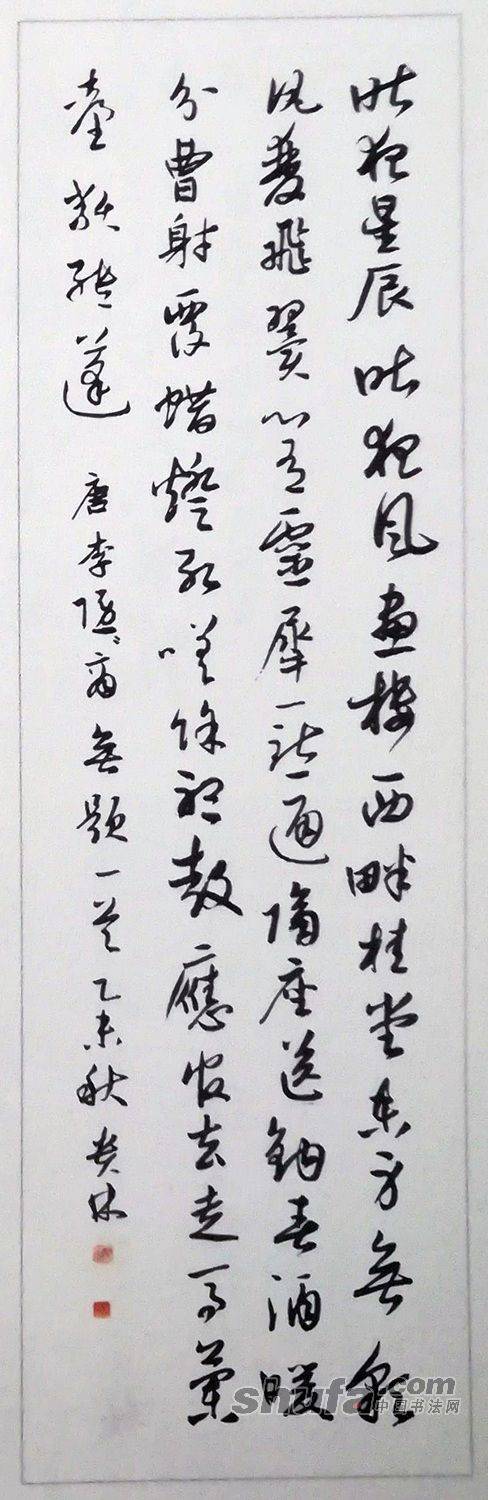 昨夜星辰昨夜風畫樓西畔桂堂東身無彩
鳳雙飛翼心有靈犀一點通隔座送鈎春酒暖
分曹射覆蜡燈紅嗟餘聽鼓應官去走馬蘭
臺類轉蓬 唐李隱商無題一首 乙未秋
shufa.com
中国书法网